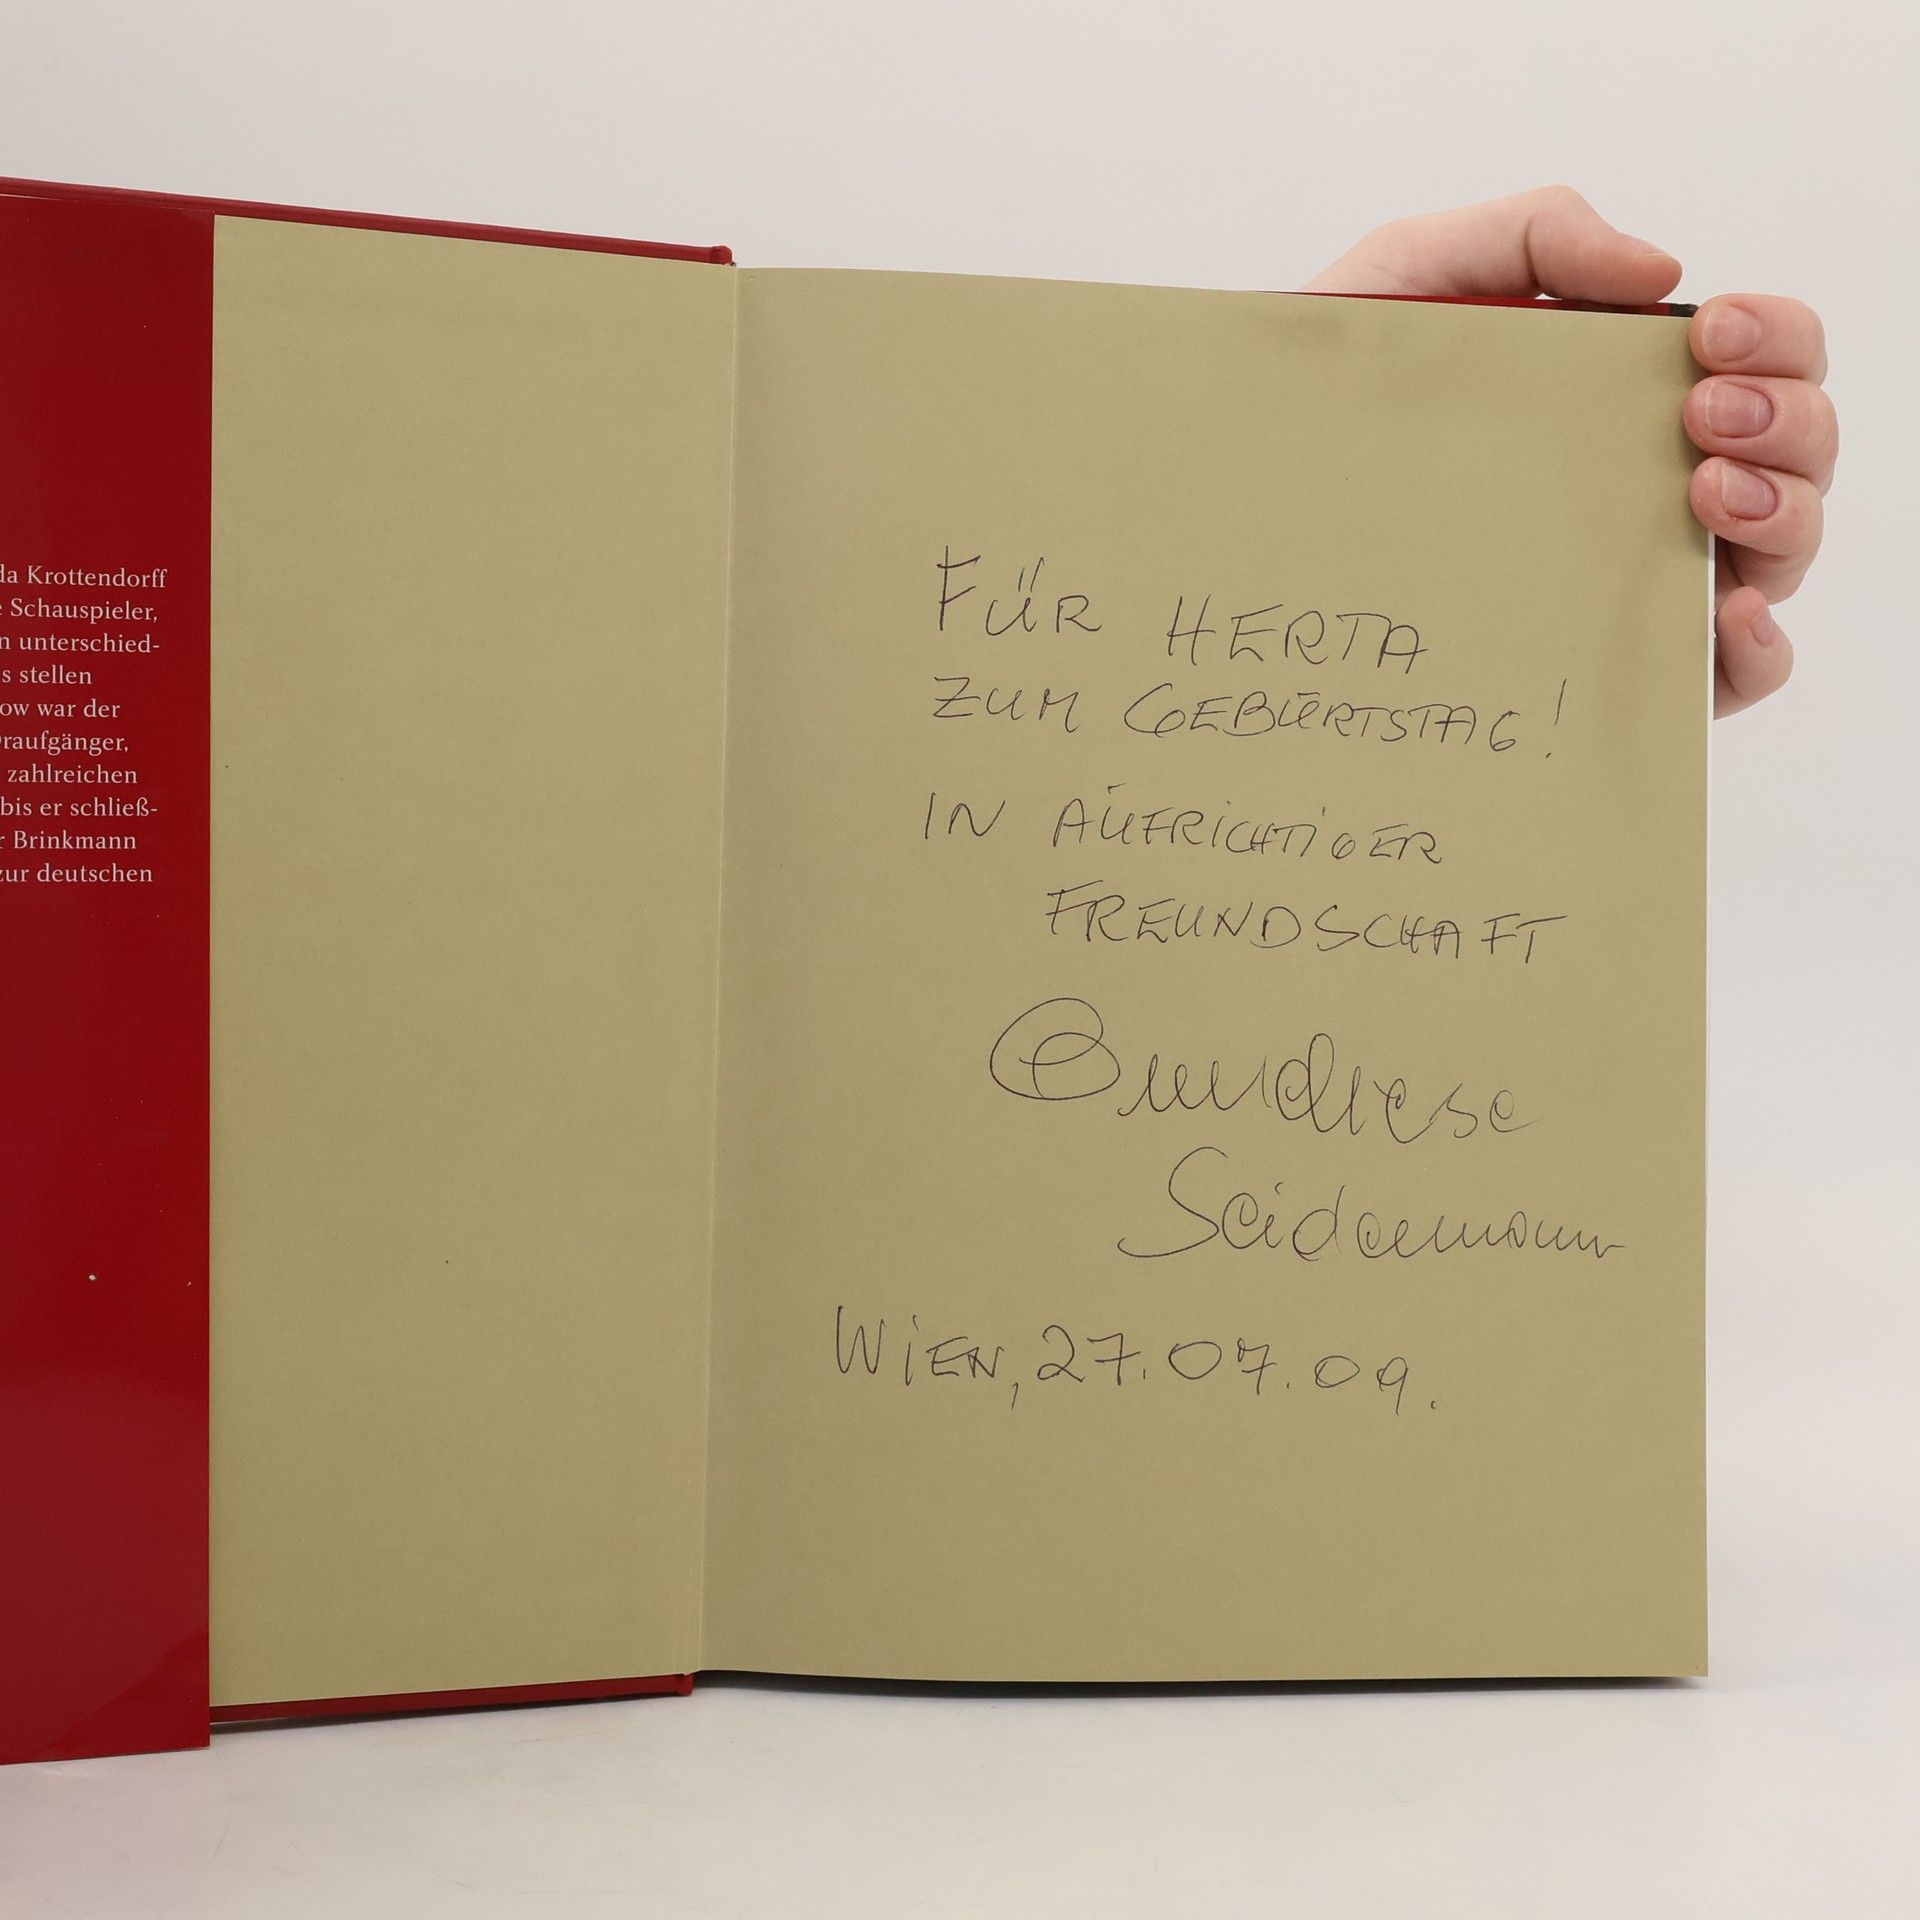 da Krottendorff
e Schauspieler,
n unterschied-
s stellen
ow war der
Draufgänger,
zahlreichen
bis er schließ-
r Brinkmann
zur deutschen
FÜR HERTA
ZUM GEBURTSTAG!
IN AUFRICHTIGER
FREUNDSCHAFT
Seidemann
WIEN, 27.07.09.